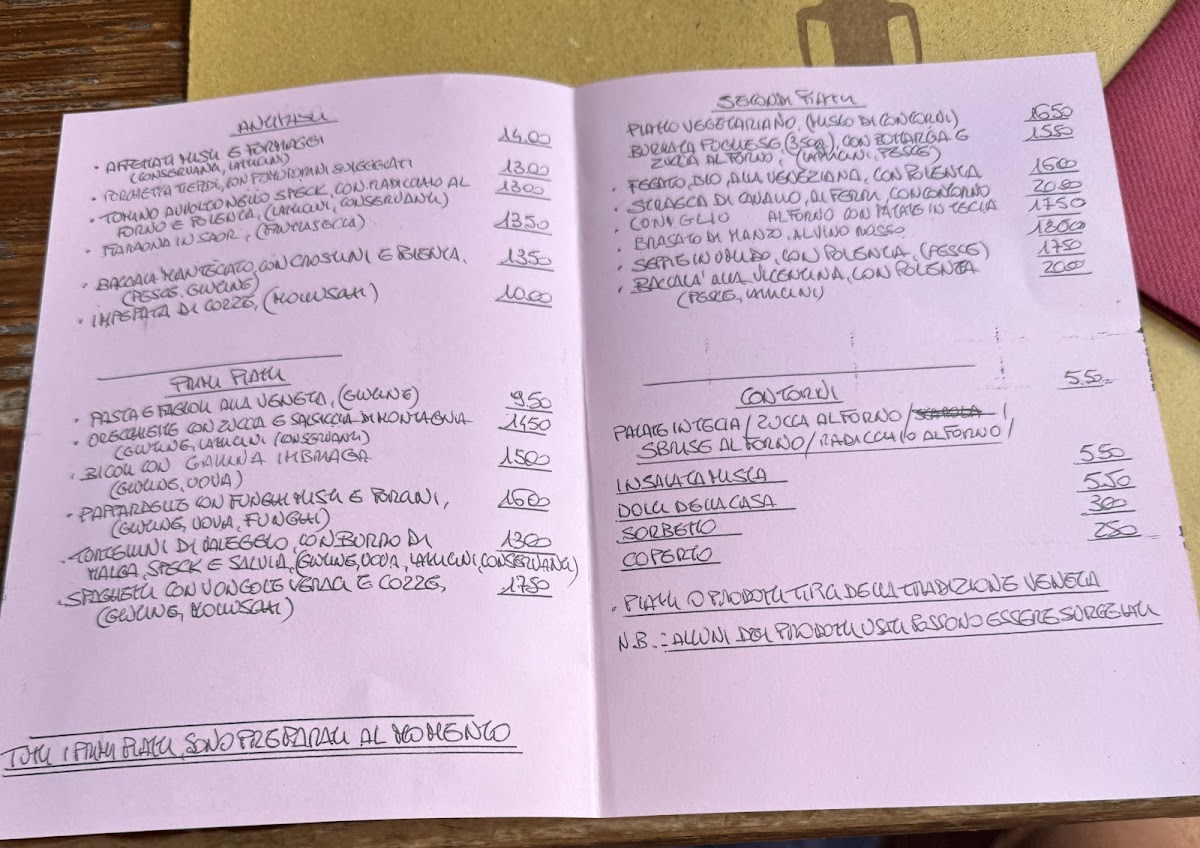 ANTIPASTI
• AFFETTATI MISTI E FORMAGGI 14.00
(CONSERVANTI, LATTICINI)
• PORCHETTA TIEPIDA, CON POMODORINI SOLEGGIATI 13.00
• TOMINO AVVOLTO NELLO SPECK, CON RADICCHIO AL 13.00
FORNO E POLENTA, (LATTICINI, CONSERVANTI)
• FARAONA IN SAOR, (FRUTTA SECCA) 13.50
• BACCALA MANTECATO, CON CROSTINI E POLENTA, 13.50
(PESCE, GLUTINE)
• IMPEPATA DI COZZE, (MOLLUSCHI) 10.00
PRIMI PIATTI
• PASTA E FAGIOLI ALLA VENETA, (GLUTINE) 9.50
• ORECCHIETTE CON ZUCCA E SALSICCIA DI MONTAGNA 14.50
(GLUTINE, LATTICINI, CONSERVANTI)
• BIGOLI CON GALLINA IMBRIAGA 15.00
(GLUTINE, UOVA)
• PAPPARDELLE CON FUNGHI MISTI E PORCINI, 16.00
(GLUTINE, UOVA, FUNGHI)
• TORTELLINI DI VALEGGIO, CON BURRO DI 13.00
MALGA, SPECK E SALVIA, (GLUTINE, UOVA, LATTICINI, CONSERVANTI)
• SPAGHETTI CON VONGOLE VERACI E COZZE, 17.50
(GLUTINE, MOLLUSCHI)
TUTTI I PRIMI PIATTI, SONO PREPARATI AL MOMENTO
SECONDI PIATTI
PIATTO VEGETARIANO, (MISTO DI CONTORNI) 16.50
BURRATA PUGLIESE (350gr), CON BOTTARGA E 15.50
ZUCCA AL FORNO, (LATTICINI, PESCE)
• FEGATO, BIO, ALLA VENEZIANA, CON POLENTA 16.00
• STRACCA DI CAVALLO, AI FERRI, CON CONTORNO 20.00
• CONIGLIO AL FORNO CON PATATE IN TECIA 17.50
• BRASATO DI MANZO, AL VINO ROSSO 18.00
• SEPPIE IN UMIDO, CON POLENTA, (PESCE) 17.50
• BACALA' ALLA VICENTINA, CON POLENTA 20.0
(PESCE, LATTICINI)
CONTORNI 5.50
PATATE IN TECIA / ZUCCA AL FORNO / SCAROLA /
SBRISE AL FORNO / RADICCHIO AL FORNO /
INSALATA MISTA 5.50
DOLCI DELLA CASA 5.50
SORBETTO 3.00
COPERTO 2.50
• PIATTI O PRODOTTI TIPICI DELLA TRADIZIONE VENETA
N.B.: ALCUNI DEI PRODOTTI USATI POSSONO ESSERE SURGELATI